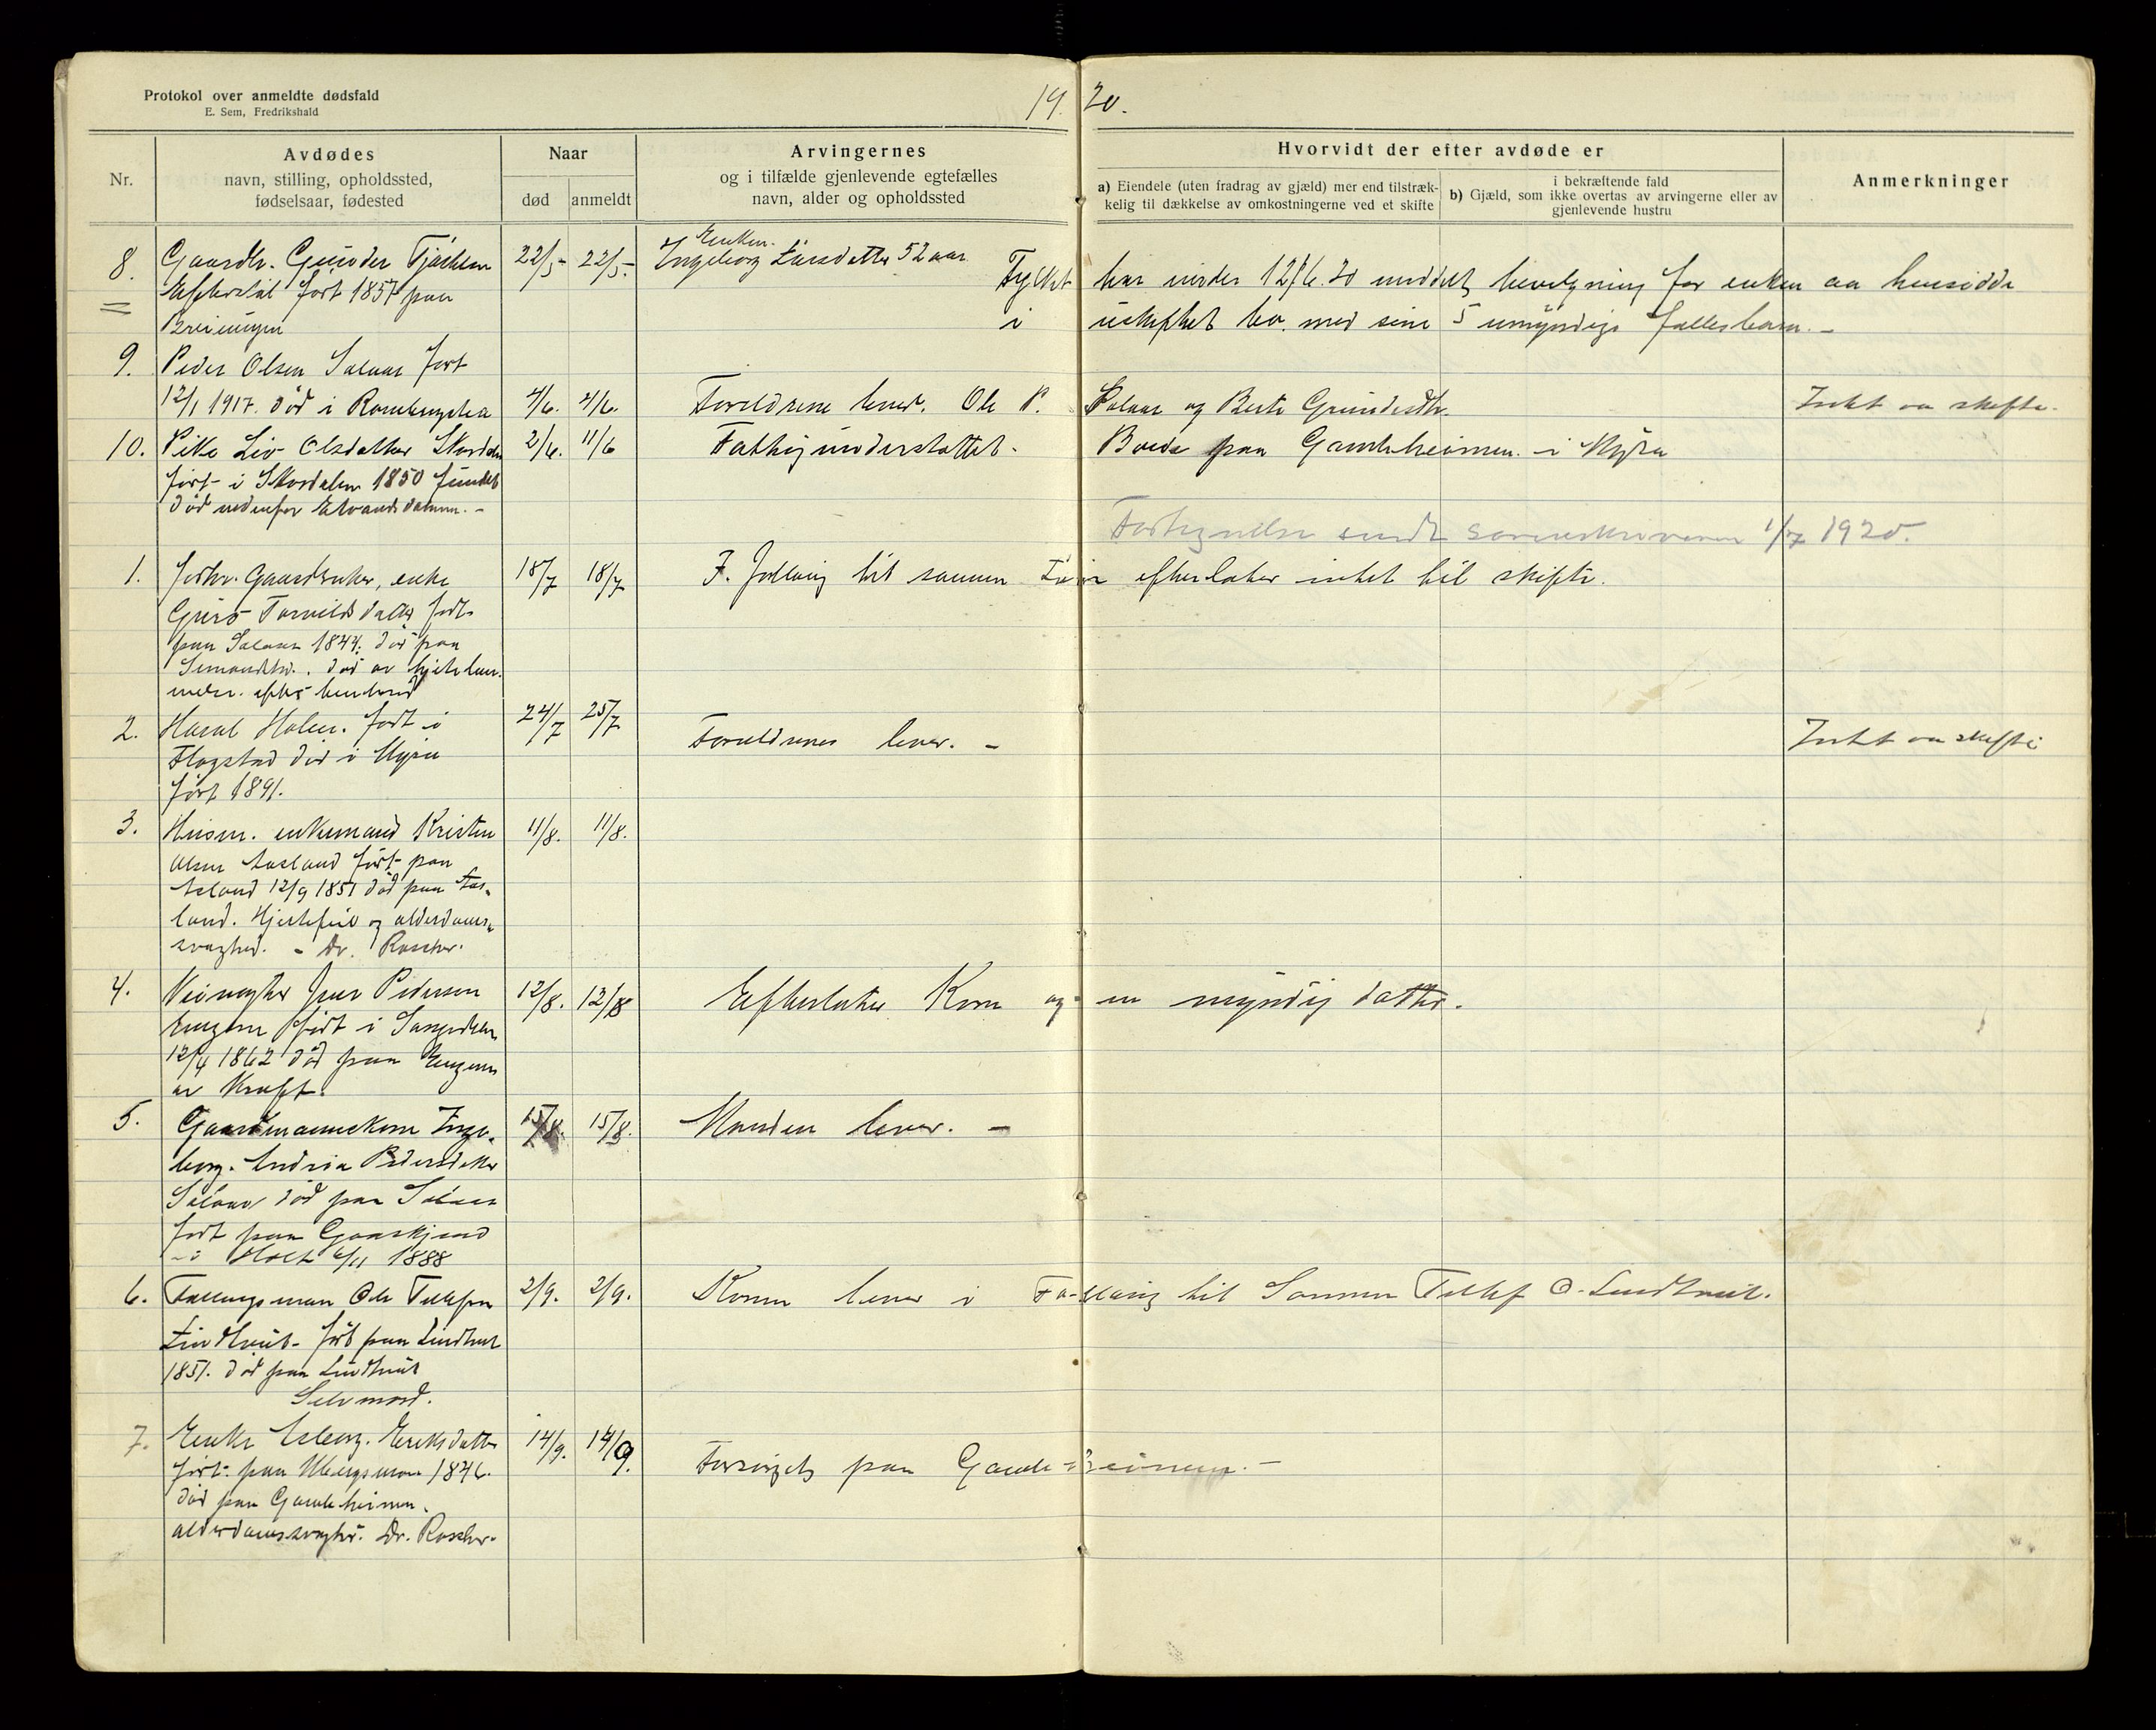 Protokol over anmeldte dødsfald
E. Sem, Fredrikshald
19 20.
Nr.
Avdødes
navn, stilling, opholdssted,
fødselsaar, fødested
Naar
død
anmeldt
Arvingernes
og i tilfælde gjenlevende egtefælles
navn, alder og opholdssted
Hvorvidt der efter avdøde er
a) Eiendele (uten fradrag av gjæld) mer end tilstræk-
kelig til dækkelse av omkostningerne ved et skifte
i bekræftende fald
b) Gjæld, som ikke overtas av arvingerne eller av
gjenlevende hustru
Anmerkninger
8. Gaardbr. Gunder 22/5- 22/5- Enken.
Ingeborg Larsdatter 52 aar
født 1857 paa
Fylket har under 12/6.20 meddelt bevilgning for enken aa hensidde
i uskiftet bo med sine 5 umyndige fellesbarn. -
9. Peder Olsen Solaas født
12/1 1917. død i 4/6. 4/6. Foreldrene lever. Ole P. Solaas og Berte Gundersdtr. Intet aa skifte.
10. Pike Liv Olsdatter 2/6. 11/6 Fattigunderstøttet. Boede paa Gamleheimen i Myra
født i 1850 fundet
død nedenfor
Fortegnelse sendt sorenskriveren 1/7 1920.
1. Forhv. Gaardbruker, enke 18/7 18/7 F. föderaad hos sønnen efterlater intet til skifte.
Guro Torvildsdatter født
paa Solaas 1844. død paa
død av
2. Haral Holen. født i 24/7 25/7 Foreldrene lever. - Intet aa skifte.
Flogstad død i Myra
født 1891.
3. Husm. enkemand Kristen 11/8. 11/8.
Olsen Aasland født paa
Asland 12/9 1851 død paa Aas-
land. Hjertefeil og alderdoms-
svaghed. - Dr. Roscher.
4. Veivogter Jens Pedersen 12/8. 13/8 Efterlater Kone og en myndig datter.
født i
12/4 1862 død paa
av Kræft.
5. Gaardmannskone Inge- 15/8. 15/8. Manden lever. -
borg Andrea Pedersdatter
Solaas død paa Solaas
født paa
i Holt 6/11 1888
6. Ole Tellefsen 2/9. 2/9. Konen lever i til Sønnen Tellef O. Lindtveit.
Lindtveit - født paa Lindtveit
1851. død paa Lindtveit
Selvmord.
7. Enke Asborg. Eriksdatter 14/9. 14/9. Forsørgets paa Gamleheimen. -
født paa Ubergsmoen 1846.
død paa Gamleheimen.
alderdomssvaghet. Dr. Roscher.